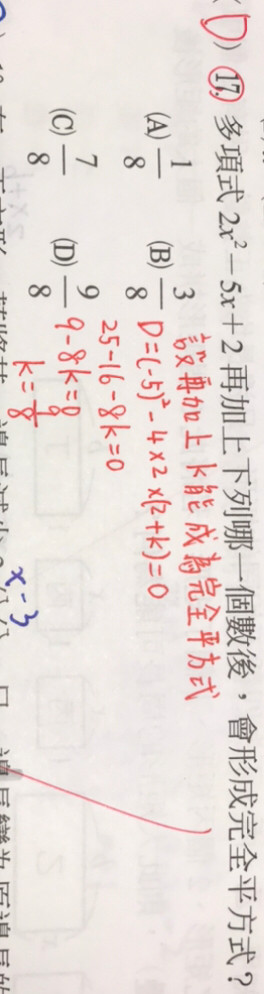 ( D ) 17. 多項式 2x² − 5x + 2 再加上下列哪一個數後，會形成完全平方式？
設再加上 k 能成為完全平方式
(A) 1/8 (B) 3/8 D=(-5)²-4×2×(2+k)=0
25-16-8k=0
(C) 7/8 (D) 9/8 9-8k=0
k=9/8
x-3